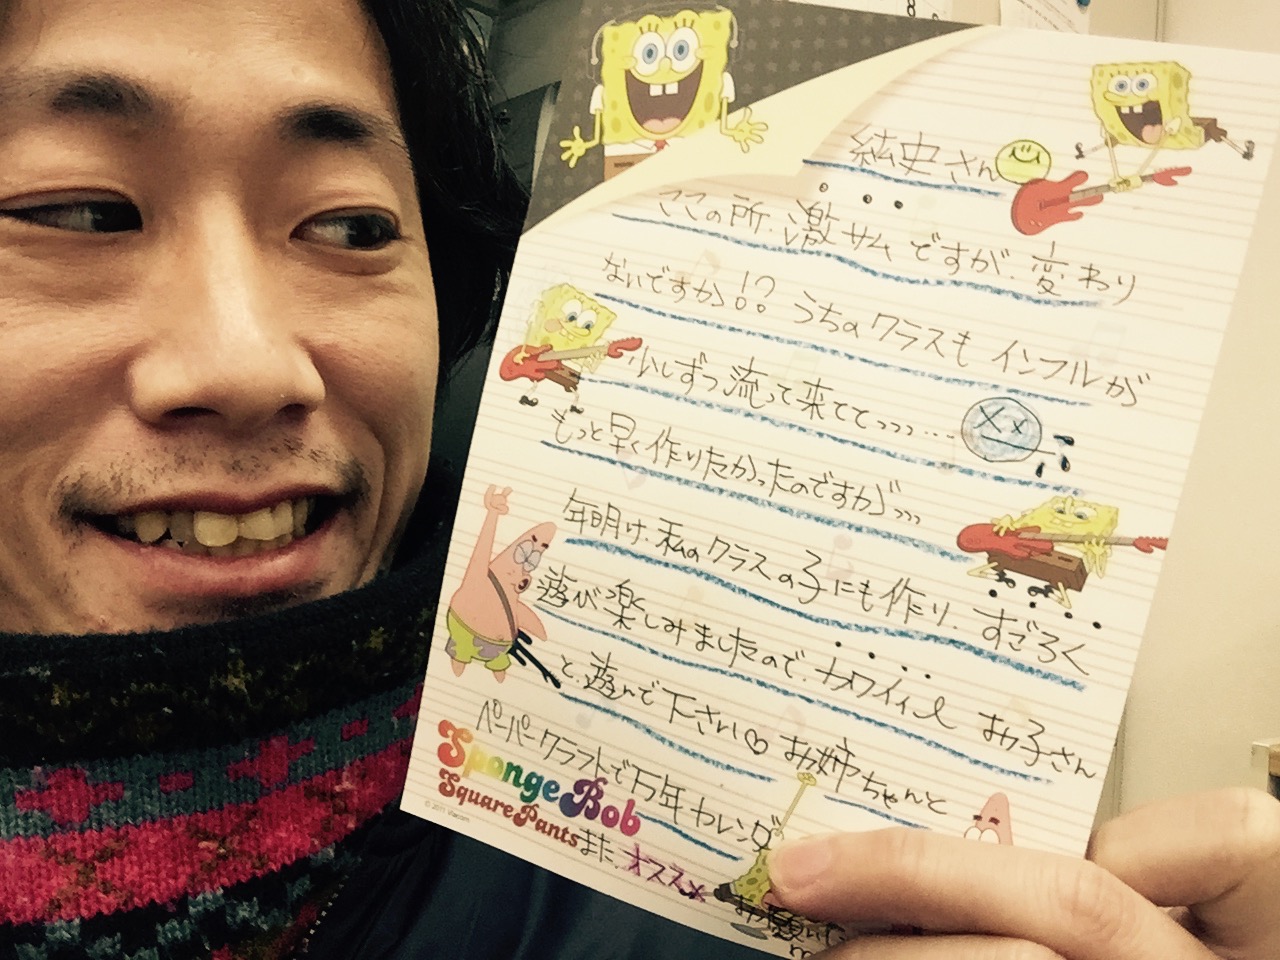 紘史さん
ここの所、激サムですが、変わり
ないですか!? うちのクラスも インフルが
少しずつ流って来ててっっっ…
もっと早く作りたかったのですがっっっ
年明け、私のクラスの子にも作り、すごろく
遊び楽しみましたので、カワイイィ お子さん
と、遊んで下さい♡ お姉ちゃんと
ペーパークラフトで万年カレンダ
SpongeBob
SquarePants
© 2011 Viacom
また、オススメ
8